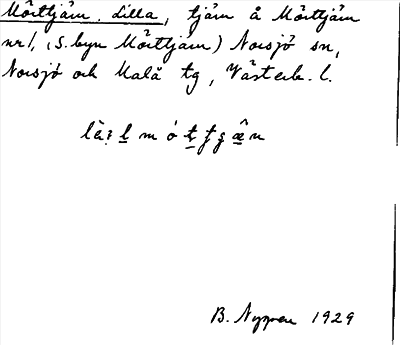 Mörttjärn, Lilla, tjärn å Mörttjärn
nr 1, (S. byn Mörttjärn) Norsjö sn,
Norsjö och Malå tg, Västerb. l.
B. Nyppen 1929